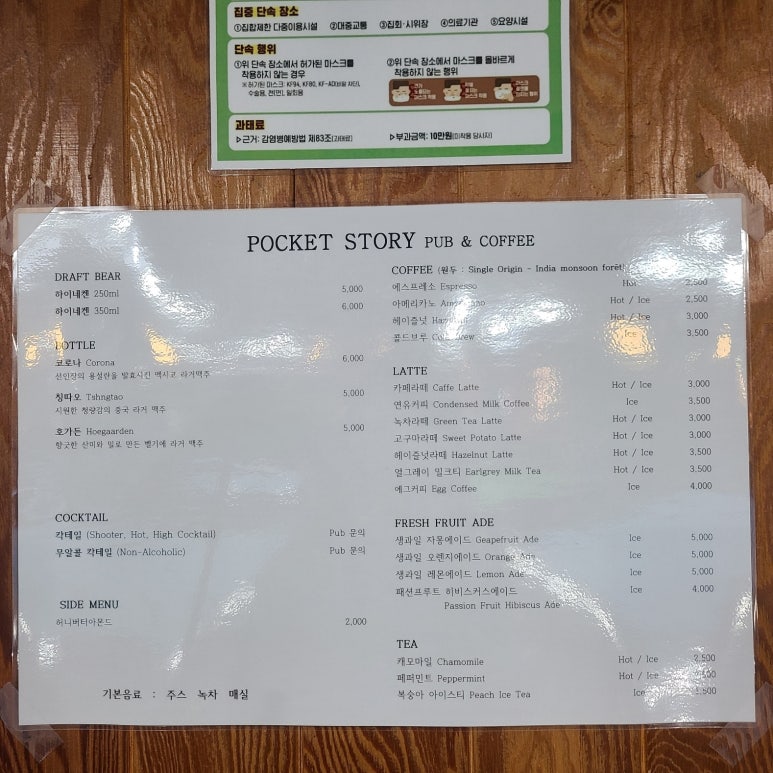 집중 단속 장소
①집합제한 다중이용시설 ②대중교통 ③집회·시위장 ④의료기관 ⑤요양시설
단속 행위
①위 단속 장소에서 허가된 마스크를 착용하지 않는 경우
※ 허가된 마스크: KF94, KF80, KF-AD(비말 차단), 수술용, 천(면), 일회용
②위 단속 장소에서 마스크를 올바르게 착용하지 않는 행위
과태료
▷근거: 감염병예방법 제83조(과태료) ▷부과금액: 10만원(미착용 당사자)
POCKET STORY PUB & COFFEE
DRAFT BEAR
하이네켄 250ml 5,000
하이네켄 350ml 6,000
BOTTLE
코로나 Corona 6,000
선인장의 용설란을 발효시킨 멕시코 라거맥주
칭따오 Tshngtao 5,000
시원한 청량감의 중국 라거 맥주
호가든 Hoegaarden 5,000
향긋한 산미와 밀로 만든 벨기에 라거 맥주
COCKTAIL
칵테일 (Shooter, Hot, High Cocktail) Pub 문의
무알콜 칵테일 (Non-Alcoholic) Pub 문의
SIDE MENU
허니버터아몬드 2,000
기본음료 : 주스 녹차 매실
COFFEE (원두 : Single Origin - India monsoon forêt)
에스프레소 Espresso Hot 2,500
아메리카노 Hot / Ice 2,500
헤이즐넛 Hot / Ice 3,000
콜드브루 Ice 3,500
LATTE
카페라떼 Caffe Latte Hot / Ice 3,000
연유커피 Condensed Milk Coffee Ice 3,500
녹차라떼 Green Tea Latte Hot / Ice 3,000
고구마라떼 Sweet Potato Latte Hot / Ice 3,000
헤이즐넛라떼 Hazelnut Latte Hot / Ice 3,500
얼그레이 밀크티 Earlgrey Milk Tea Hot / Ice 3,500
에그커피 Egg Coffee Ice 4,000
FRESH FRUIT ADE
생과일 자몽에이드 Geapefruit Ade Ice 5,000
생과일 오렌지에이드 Orange Ade Ice 5,000
생과일 레몬에이드 Lemon Ade Ice 5,000
패션프루트 히비스커스에이드 Ice 4,000
Passion Fruit Hibiscus Ade
TEA
캐모마일 Chamomile Hot / Ice 2,500
페퍼민트 Peppermint Hot / Ice
복숭아 아이스티 Peach Ice Tea Ice